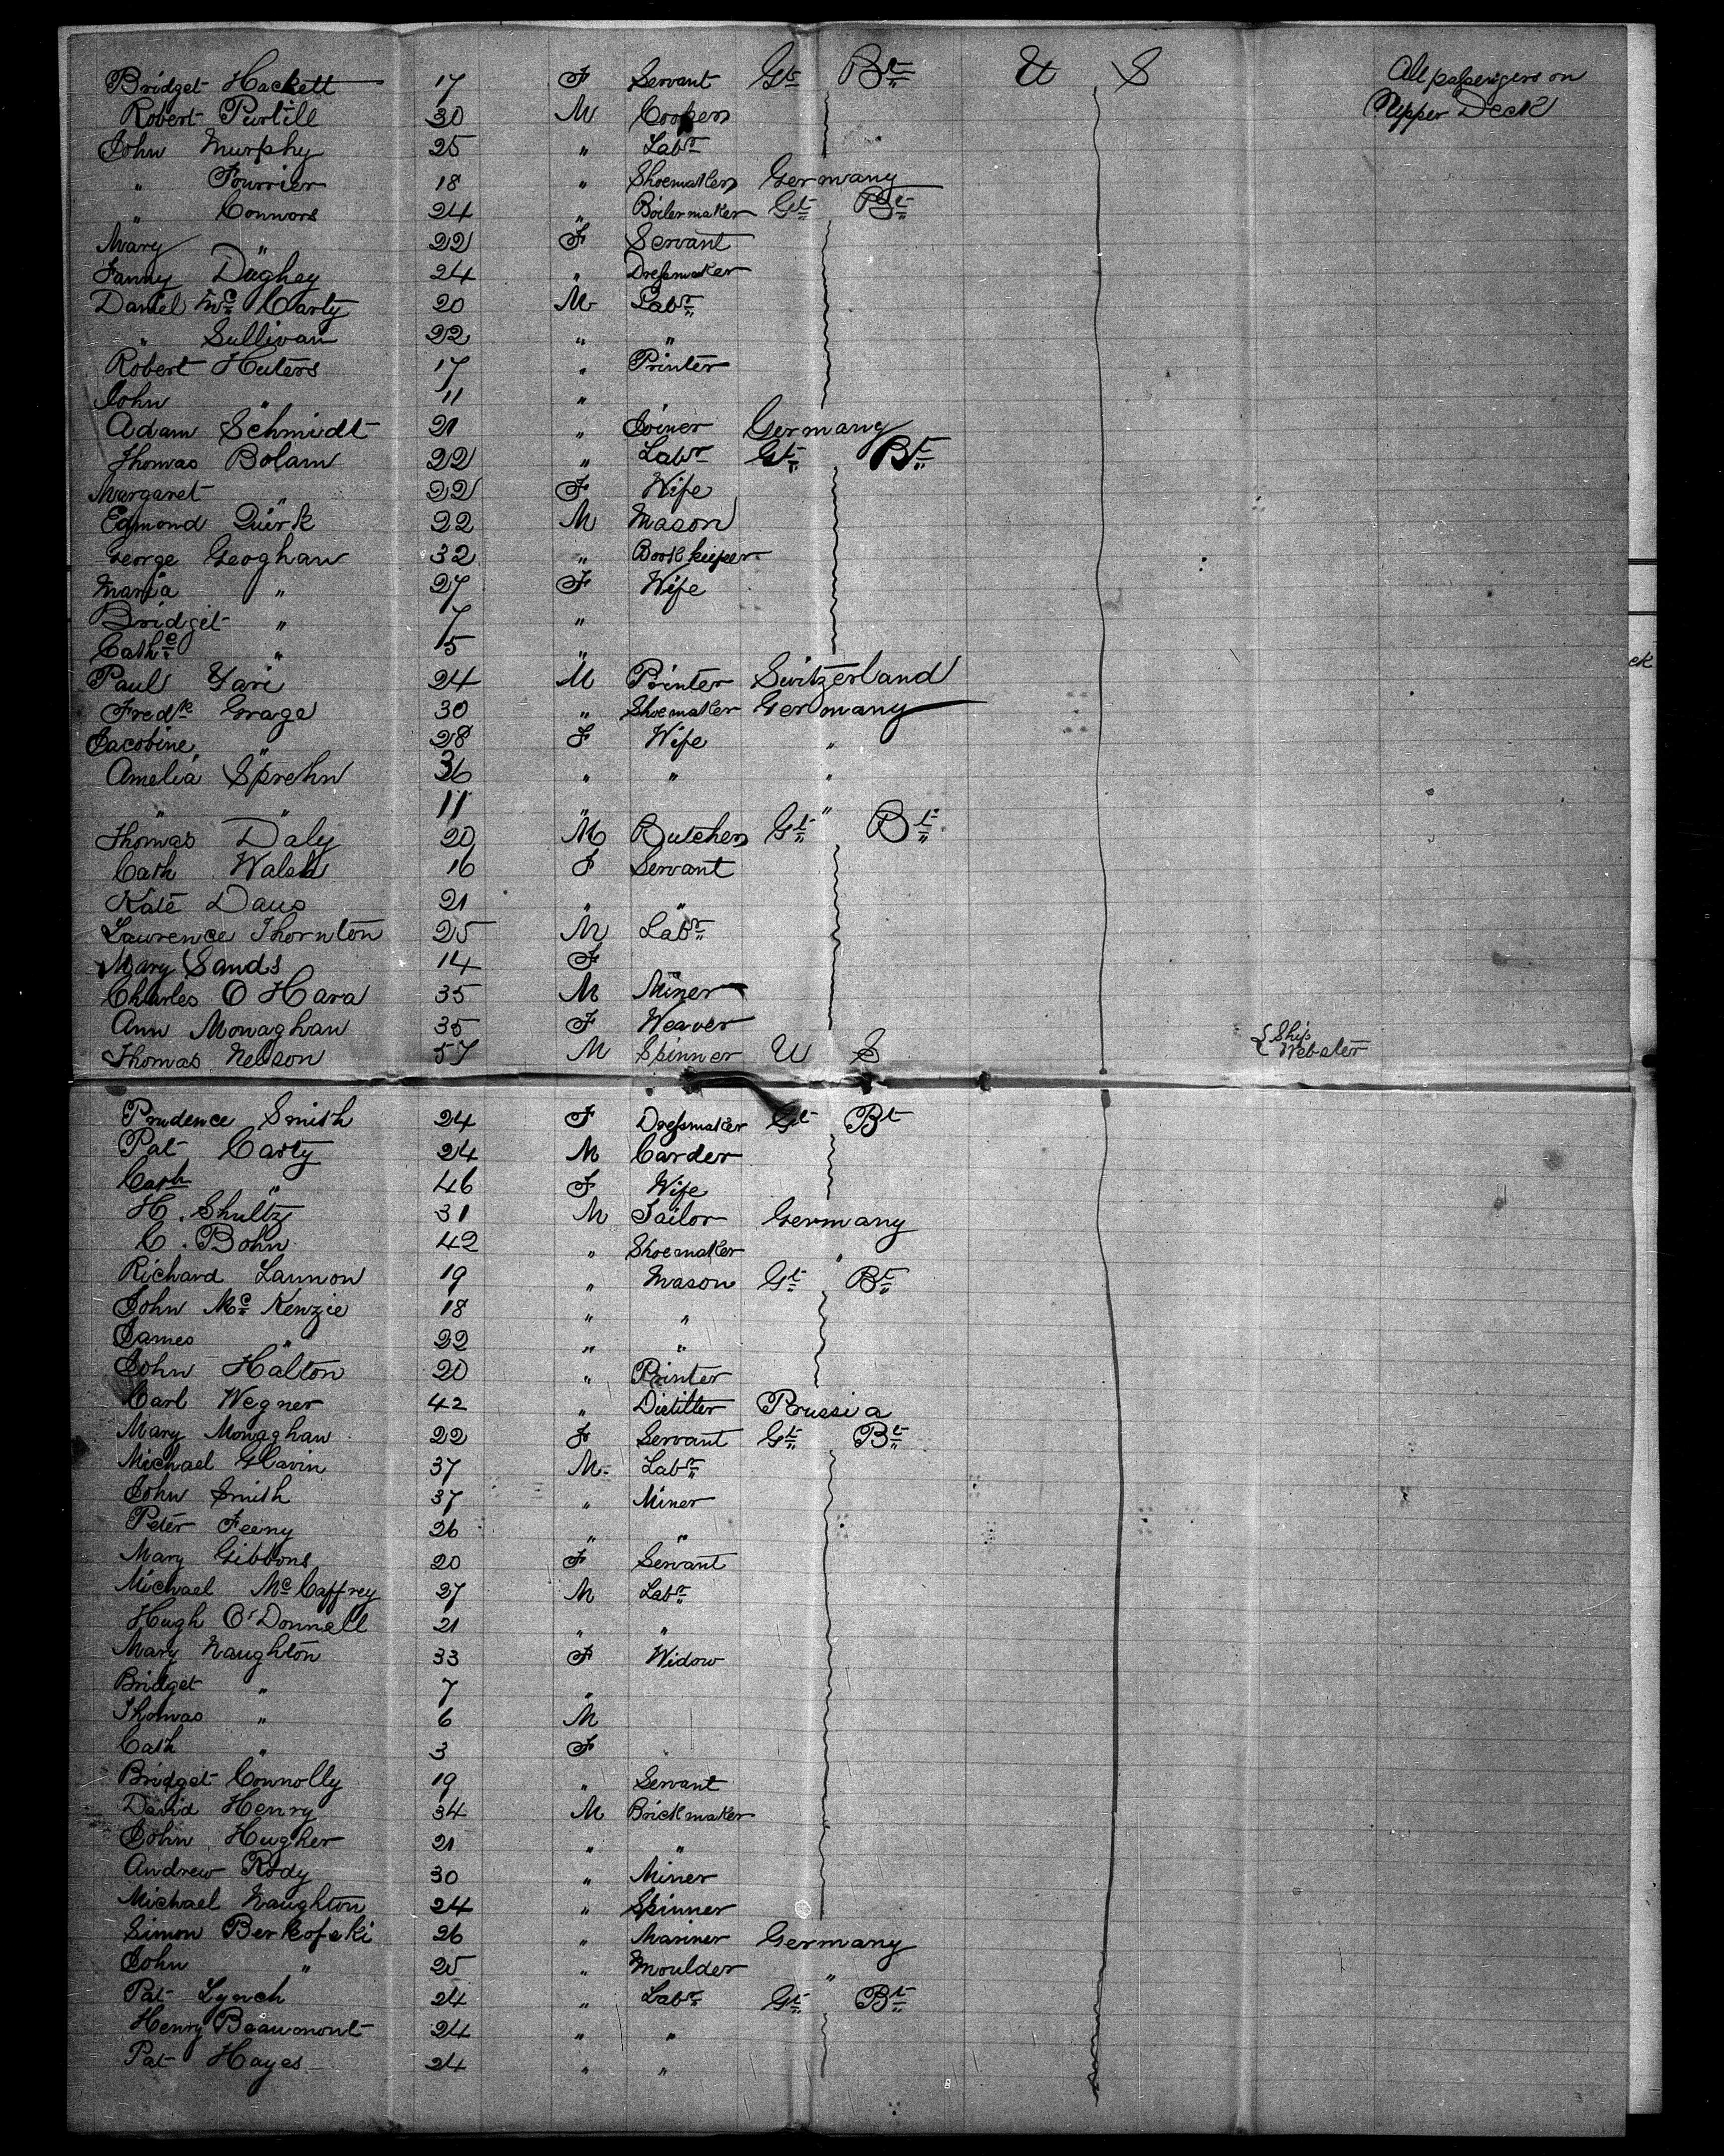 Bridget Hackett 17 F Servant Gt Bt U S All passengers on
Robert Purtill 30 M Cooper Upper Deck
John Murphy 25 " Labr
" Fourrier 18 " Shoemaker Germany
" Connors 24 " Boilermaker Gt Bt
Mary " 22 F Servant
Fanny Dughey 24 " Dressmaker
Daniel Mc Carty 20 M Labr
" Sullivan 22 " "
Robert Huters 17 " Printer
John " 11 "
Adam Schmidt 21 " Joiner Germany
Thomas Bolam 22 " Labr Gt Bt
Margaret " 22 F Wife
Edmond Quirk 22 M Mason
George Geoghan 32 " Bookkeeper
Maria " 27 F Wife
Bridget " 7 "
Cathe " 5 "
Paul Yari 24 M Printer Switzerland
Fredk Grage 30 " Shoemaker Germany
Jacobine " 28 F Wife "
Amelia Sprehn 36 " " "
" " 11 " "
Thomas Daly 20 M Butcher Gt Bt
Cath Walsh 16 F Servant
Kate Daus 21 " "
Lawrence Thornton 25 M Labr
Mary Sands 14 F
Charles O Hara 35 M Miner
Ann Monaghan 35 F Weaver
Thomas Nelson 57 M Spinner U S { Ship Webster
Prudence Smith 24 F Dressmaker Gt Bt
Pat Carty 24 M Carder
Cath " 46 F Wife
H. Shultz 31 M Tailor Germany
C. Bohn 42 " Shoemaker "
Richard Lannon 19 " Mason Gt Bt
John Mc Kenzie 18 " "
James " 22 " "
John Halton 20 " Printer
Carl Wegner 42 " Distiller Prussia
Mary Monaghan 22 F Servant Gt Bt
Michael Glavin 37 M Labr
John Smith 37 " Miner
Peter Feeny 26 " "
Mary Gibbons 20 F Servant
Michael Mc Caffrey 27 M Labr
Hugh O'Donnell 21 " "
Mary Naughton 33 F Widow
Bridget " 7 "
Thomas " 6 M
Cath " 3 F
Bridget Connolly 19 " Servant
David Henry 34 M Brickmaker
John Hugher 21 " "
Andrew Rody 30 " Miner
Michael Naughton 24 " Spinner
Simon Berkofski 26 " Mariner Germany
John " 25 " Moulder "
Pat Lynch 24 " Labr Gt Bt
Henry Beaumont 24 " "
Pat Hayes 24 " "